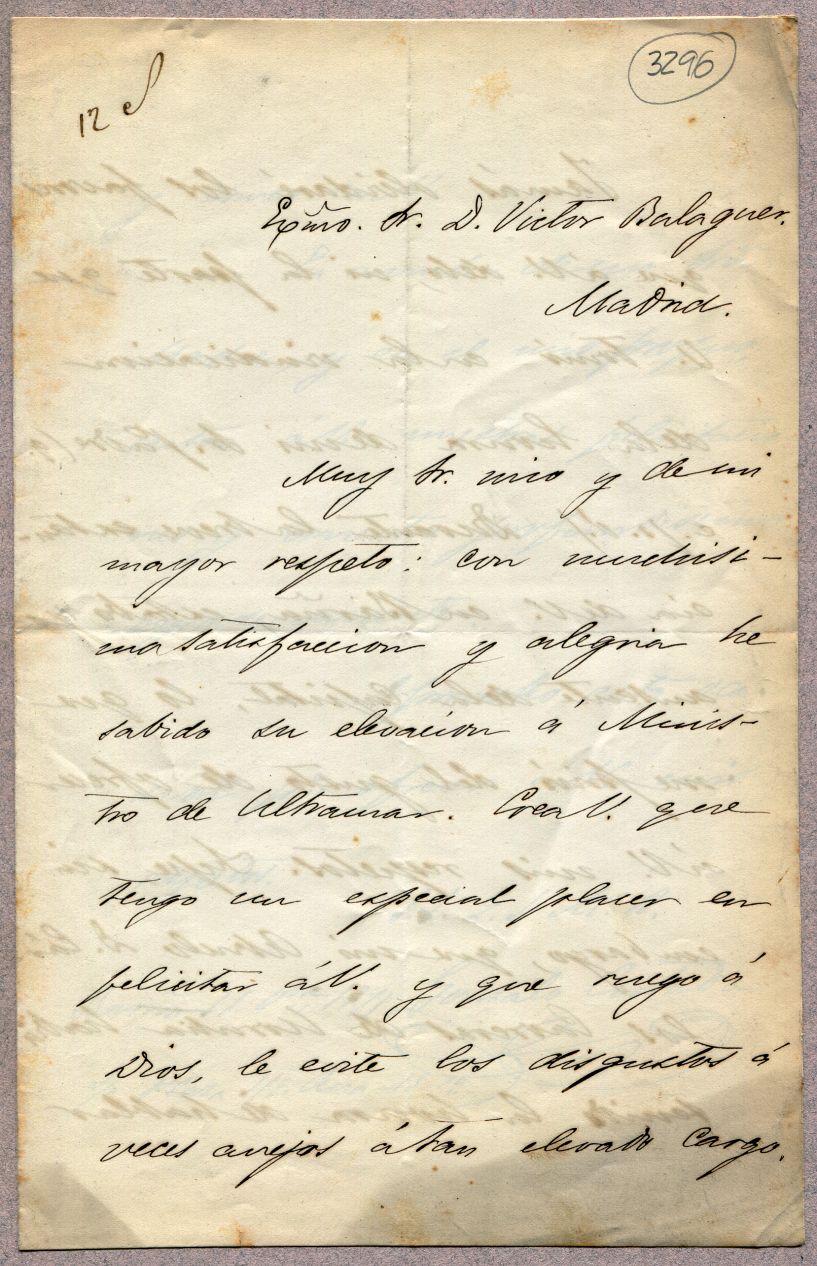 12
3296
Exm̃o. Sr. D. Victor Balaguer.
Madrid.
Muy Sr. mio y de mi
mayor respeto: con muchisi-
ma satisfaccion y alegria he
sabido su elevacion á Minis-
tro de Ultramar. Crea V. que
tengo un especial placer en
felicitar á V. y que ruego á
Dios, le evite los disgustos á
veces anejos á tan elevado cargo.